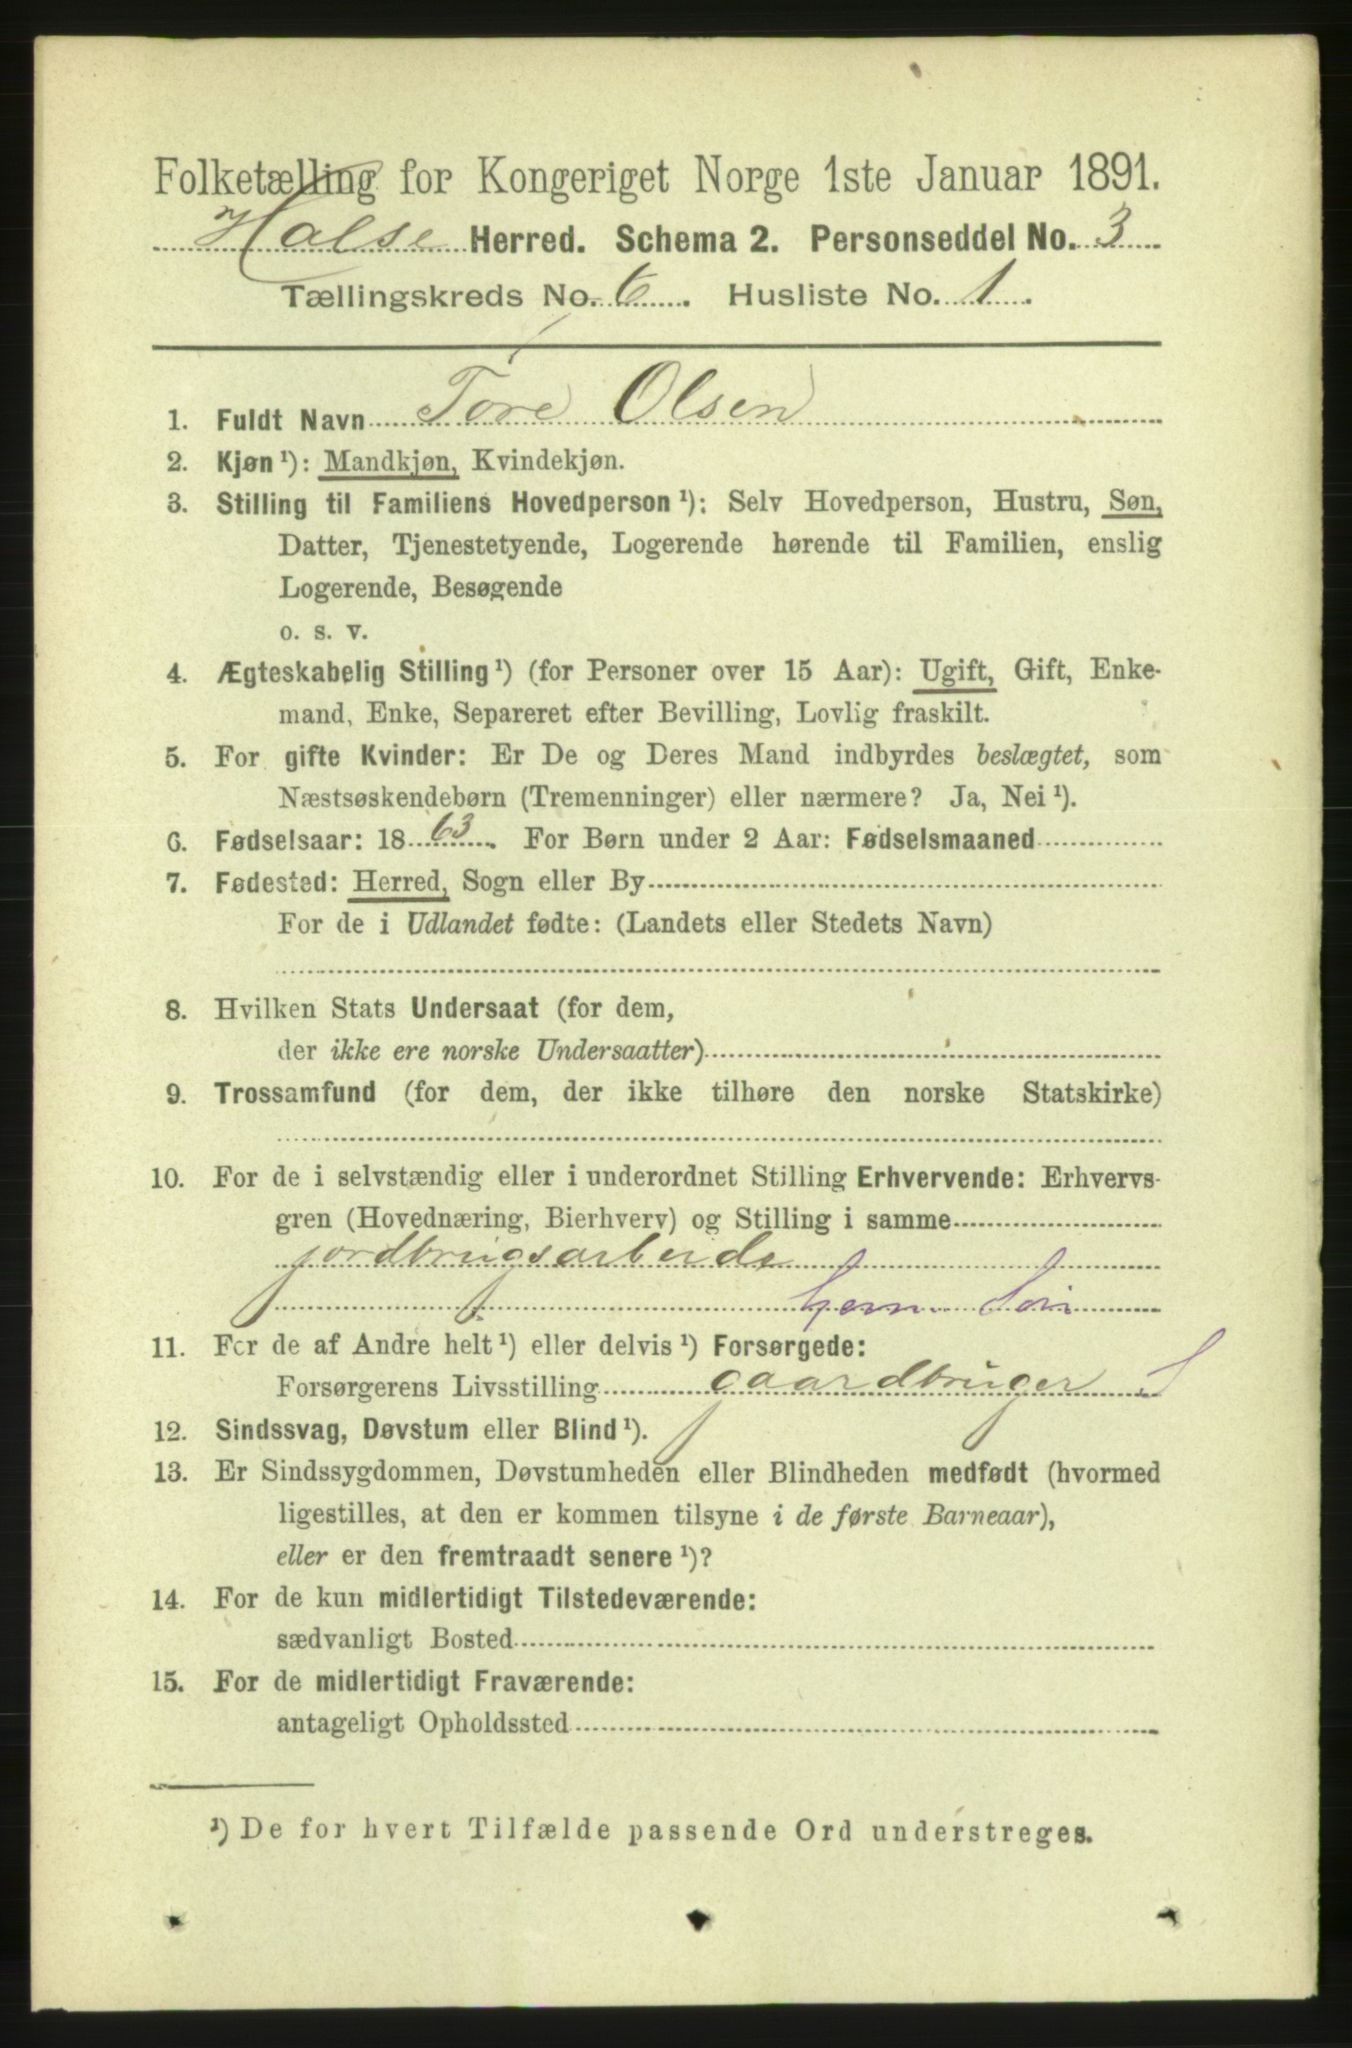 Folketælling for Kongeriget Norge 1ste Januar 1891.
Halse Herred. Schema 2. Personseddel No. 3
Tællingskreds No. 6. Husliste No. 1.
1. Fuldt Navn Tore Olsen
2. Kjøn ¹): Mandkjøn, Kvindekjøn.
3. Stilling til Familiens Hovedperson ¹): Selv Hovedperson, Hustru, Søn,
Datter, Tjenestetyende, Logerende hørende til Familien, enslig
Logerende, Besøgende
o. s. v.
4. Ægteskabelig Stilling ¹) (for Personer over 15 Aar): Ugift, Gift, Enke-
mand, Enke, Separeret efter Bevilling, Lovlig fraskilt.
5. For gifte Kvinder: Er De og Deres Mand indbyrdes beslægtet, som
Næstsøskendebørn (Tremenninger) eller nærmere? Ja, Nei ¹).
6. Fødselsaar: 1863. For Børn under 2 Aar: Fødselsmaaned
7. Fødested: Herred, Sogn eller By
For de i Udlandet fødte: (Landets eller Stedets Navn)
8. Hvilken Stats Undersaat (for dem,
der ikke ere norske Undersaatter)
9. Trossamfund (for dem, der ikke tilhøre den norske Statskirke)
10. For de i selvstændig eller i underordnet Stilling Erhvervende: Erhvervs-
gren (Hovednæring, Bierhverv) og Stilling i samme
jordbrugsarbeide
11. For de af Andre helt ¹) eller delvis ¹) Forsørgede:
Forsørgerens Livsstilling gaardbruger S
12. Sindssvag, Døvstum eller Blind ¹).
13. Er Sindssygdommen, Døvstumheden eller Blindheden medfødt (hvormed
ligestilles, at den er kommen tilsyne i de første Barneaar),
eller er den fremtraadt senere ¹)?
14. For de kun midlertidigt Tilstedeværende:
sædvanligt Bosted
15. For de midlertidigt Fraværende:
antageligt Opholdssted
¹) De for hvert Tilfælde passende Ord understreges.